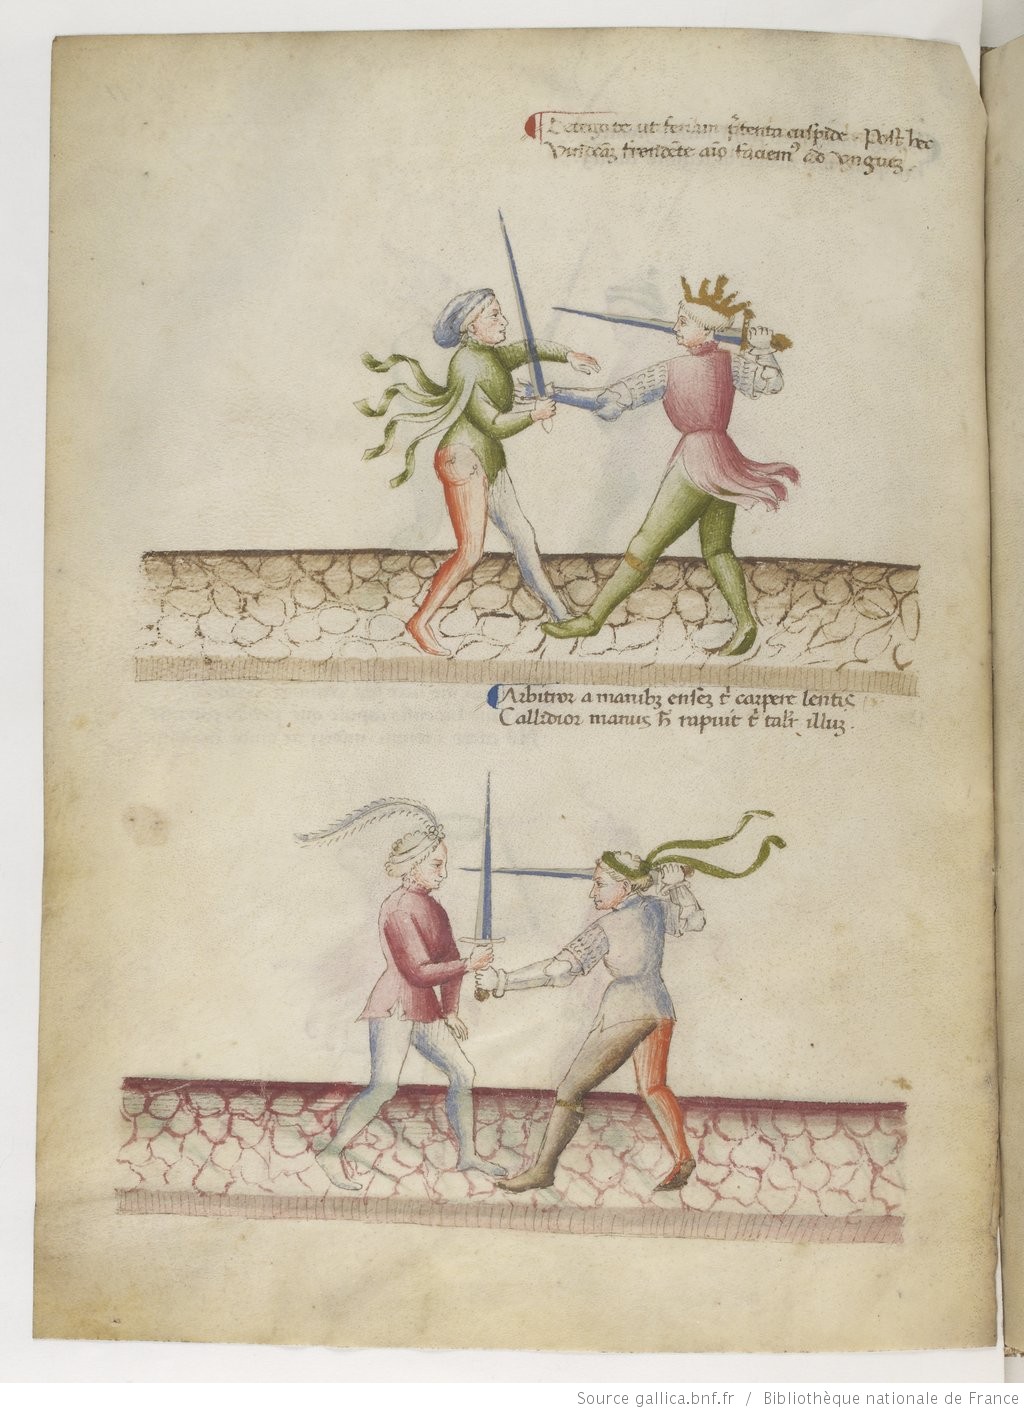 Detego te ut feriam p̄tenta cuspide. Post hec
frendēte aīo faciemꝰ ad vnguez.
Arbitror a manibꝫ ensez t̄ carpere lentis
Callidior manus h̄ rapuit t̄ talr̄ illuz.
Source gallica.bnf.fr / Bibliothèque nationale de France